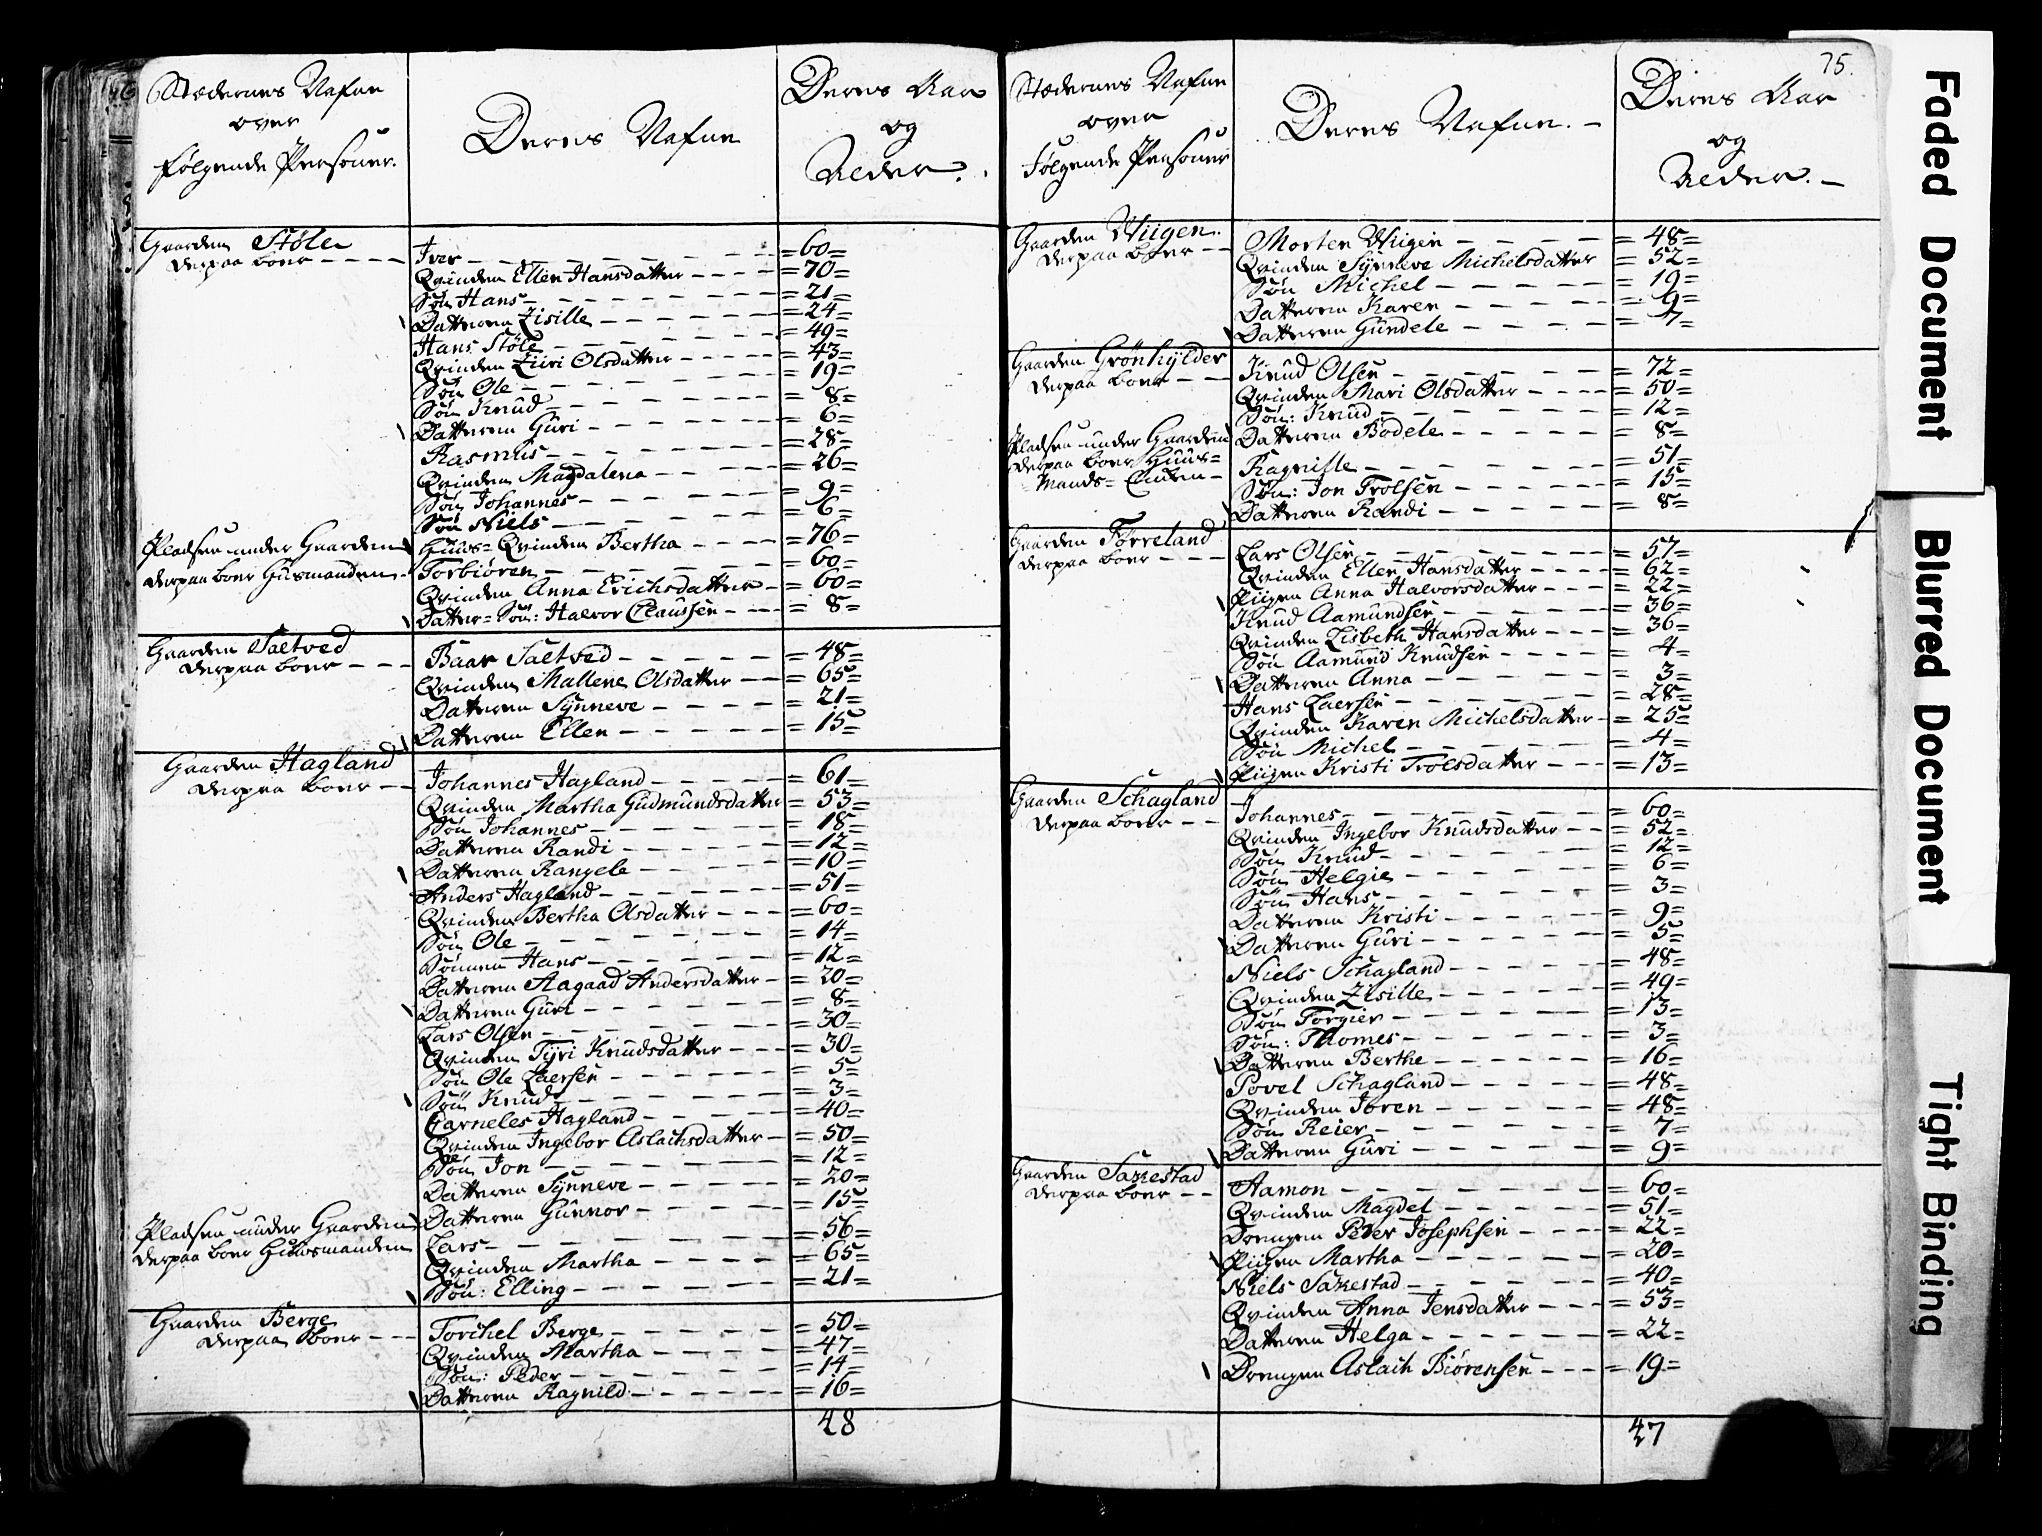 Stædernes Nafne
over
følgende Persouer.
Deres Nafne
Deres Aar
og
Alder.
Gaarden Støle
derpaa boer - - - -
Iver - - - =60=
Qvinden Ellen Hansdatter - - - =70=
Søn Hans - - - =21=
Datteren Zisille - - - =24=
Hans Støle - - - =49=
Qvinden Ziiri Olsdatter - - - =43=
Søn Ole - - - =19=
Søn Knud - - - = 8=
Datteren Guri - - - = 6=
Rasmus - - - =28=
Qvinden Magdalena - - - =26=
Søn Johannes - - - = 9=
Søn Niels - - - = 6=
Pladsen under Gaarden
derpaa boer Husmanden -
Huus=Qvinden Bertha - - - =76=
Torbiören - - - = 60=
Qvinden Anna Erichsdatter - = 60=
Datter=Søn: Halvor Claussen - - - = 8=
Gaarden Saltved
derpaa boer - - -
Baar Saltved - - - =48=
Qvinden Mallene Olsdatter - - = 65=
Datteren Synneve - - - = 21=
Datteren Ellen - - - = 15=
Gaarden Hagland
derpaa boer - -
Johannes Hagland - - - = 61=
Qvinden Martha Gudmundsdatter = 53=
Søn Johannes - - - = 18=
Datteren Randi - - - =12=
Datteren Rangele - - - =10=
Anders Hagland - - - = 51=
Qvinden Bertha Olsdatter - - - = 60=
Søn Ole - - - = 14=
Sønnen Hans - - - = 12=
Datteren Aagaad Andersdatter - = 20=
Datteren Guri - - - = 8=
Lars Olsen - - - = 30=
Qvinden Tyri Knudsdatter - - - = 30=
Søn Ole Laersen - - - = 5=
Søn Knud - - - = 3=
Garneles Hagland - - - = 40=
Qvinden Ingebor Aslachsdatter - = 50=
Søn Jon - - - = 12=
Datteren Synneve - - - = 20=
Datteren Gunnor - - - = 15=
Pladsen under Gaarden
derpaa boer Huusmanden
Lars - - - = 56=
Qvinden Martha - - - = 65=
Søn: Elling - - - = 21=
Gaarden Berge
derpaa boer - - -
Torchel Berge - - - = 50=
Qvinden Martha - - - =47=
Søn: Peder - - - = 14=
Datteren Ragnild - - - = 16=
48
75.
Stædernes Nafne
over
Følgende Persouer
Deres Nafne. -
Deres Aar
og
Alder. -
Gaarden Wiigen.
derpaa boer - -
Morten Wiigen - - - = 48=
Qvinden Synneve Michelsdatter = 52=
Søn Michel - - - = 19=
Datteren Karen - - - = 9=
Datteren Gundele - - - = 7=
Gaarden Grönhylder
derpaa boer - - -
Knud Olsen - - - = 72=
Qvinden Mari Olsdatter - - - = 50=
Søn: Knud - - - = 12=
Datteren Bodele - - - = 8=
Pladsen under Gaarden
derpaa boer Huus=
Mands= Enken -
Ragnille - - - = 51=
Søn: Jon Trolsen - - - = 15=
Datteren Randi - - - = 8=
Gaarden Førreland
derpaa boer - - -
Lars Olsen - - - = 57=
Qvinden Ellen Hansdatter - - - = 62=
Piigen Anna Halvorsdatter - - - = 22=
Knud Aamundsen - - - = 36=
Qvinden Lisbeth Hansdatter - - - = 36=
Søn Aamund Knudsen - - - = 4=
Datteren Anna - - - = 3=
Hans Laersen - - - = 28=
Qvinden Karen Michelsdatter - = 25=
Søn Michel - - - = 4=
Piigen Kristi Trolsdatter - - - =13=
Gaarden Schagland
derpaa boer - -
Johannes - - - = 60=
Qvinden Ingebor Knudsdatter - - = 52=
Søn Knud - - - = 12=
Søn Helgie - - - = 6=
Søn Hans - - - = 3=
Datteren Kristi - - - = 9=
Datteren Guri - - - = 5=
Niels Schagland - - - = 48=
Qvinden Zisille - - - = 49=
Søn Torgier - - - = 13=
Søn: Thomes - - - = 3=
Datteren Berthe - - - = 16=
Povel Schagland - - - = 48=
Qvinden Joren - - - = 48=
Søn Reier - - - = 7=
Datteren Guri - - - = 9=
Gaarden Saxestad
derpaa boer - -
Aamon - - - = 60=
Qvinden Magdel - - - = 51=
Drengen Peder Josephsen - - - = 22=
Piigen Martha - - - = 20=
Niels Saxestad - - - = 40=
Qvinden Anna Jensdatter - - - = 53=
Datteren Helga - - - = 22=
Drengen Aslach Biørensen - - - = 19=
47
Faded Document
Blurred Document
Tight Binding